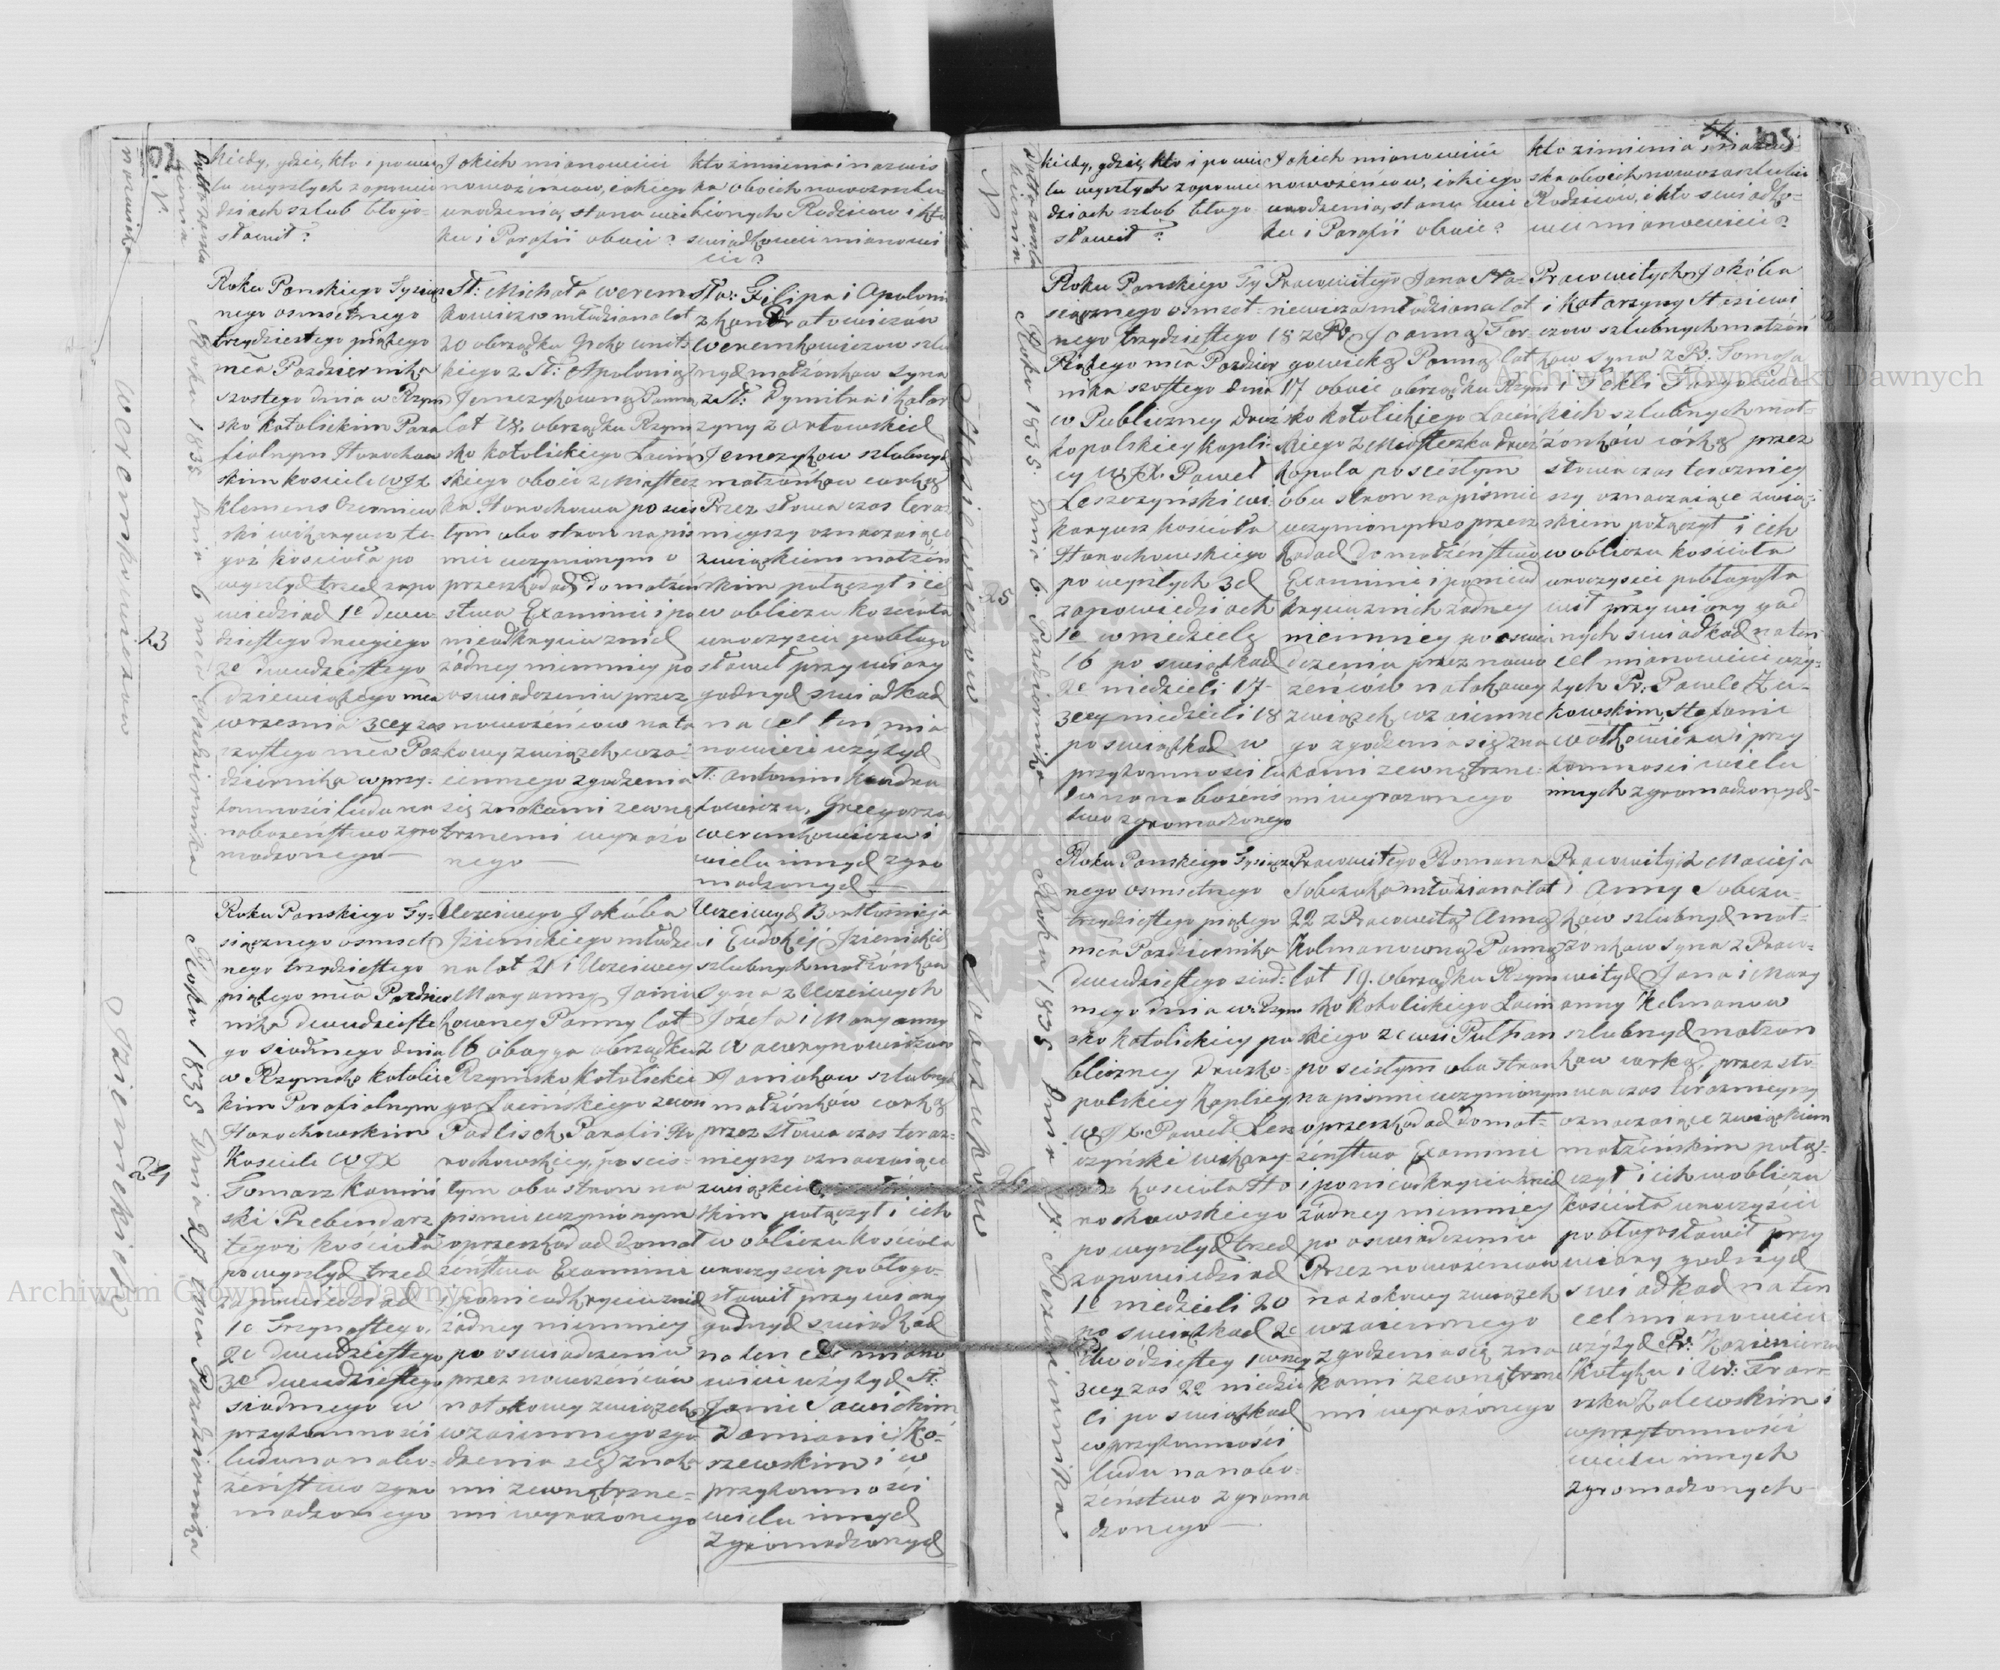 kiedy, gdzie, kto i po wie
lu wyszłych zapowie
dziach szlub błogo-
sławił?
Jakich mianowicie
nowożeńców, iakiego
urodzenia, stanu wie
ku i Parafii obuie?
kto z imienia i nazwis
ka oboich nowozaszlu
bionych Rodziców i kto
swiadkowie mianowi
cie?
Werenkowiczow
23
Roku 1835 dnia 6 mca Pazdziernika
Roku Panskiego Tysiącz
nego osmsetnego
trzydziestego piątego
mca Pazdziernika
szostego dnia w Rzym
sko Katolickim Para
fialnym Horochow
skim kosciele WJX
Klemens
ski wikaryusz te
goż kościoła po
wyszłych trzech zapo
wiedziach 1e dwu
dziestego drugiego
2e dwudziestego
dziewiątego mca
wrzesnia 3ciey zas
szostego mca Paz
dziernika w przy-
tomności ludu na
nabożeństwo zgro
madzonego
St: Michała Werem
kowicza młodziana lat
20 obrządku Greko units
kiego z St: Apolonią
Jemczykowną Panną
lat 18 obrządku Rzym
sko Katolickiego Łaciń
skiego oboie z Miastecz
ka Horochowa po scis
tym obu stron na pis
mie uczynionym o
przeszkodach do małżeń
stwa Examinie i po
nieodkryciu z nich
żadney niemniey po
oswiadczeniu przez
nowożeńców na ta
kowy związek wza
iemnego zgodzenia
się znakami zewnę
trznemi wyrażo
nego
Sła: Filipa i Apoloni
z Kondratowiczów
Weremkowiczow szlu
nych małżonkow syna
z St: Dymitra i Katar
zyny z Orłowskich
Jemczykow szlubnych
małżonkow corką
Przez słowa czas tera
znieyszy oznaczaiące
związkiem małżeń
skim połączył i ich
w obliczu kosciola
uroczyscie pobłogo
sławił przy wiary
godnych swiadkach
na cel ten mia
nowicie użytych
St: Antonim Kondra
towiczu, Grzegorzu
Weremkowiczu i
wielu innych zgro
madzonych
24
Roku 1835 Dnia 27 mca Pazdziernika
Roku Panskiego Ty-
siącznego osmset
nego trzydziestego
piątego mca Pazdzier
nika dwudzieste
go siodmego dnia
w Rzymsko Katolic
kim Parafialnym
Horochowskim
Kosciele WJX
Tomasz Kamiń
ski Prebendarz
tegoż kościoła
po wyszłych trzech
zapowiedziach
1e Trzynastego,
2e dwudziestego
3e dwudziestego
siodmego w
przytomności
ludu na nabo-
żeństwo zgro
madzonego
Uczciwego Jakóba
Dzienickiego młodzia
na lat 21 i Uczciwey
Maryanny Janiu
kowney Panny lat
16 oboyga obrządku
Rzymsko Katolickie
go Łacińskiego ze wsi
Podlisek Parafii Ho
rochowskiey, po scis-
łym obu stron na
pismie uczynionym
o przeszkodach do mał
żeństwa Examinie
i po nieodkryciu z nich
żadney niemniey
po oswiadczeniu
przez nowożeńców
na takowy związek
wzaiemnego zgo
dzenia się znak
mi zewnętrzne-
mi wyrażonego
Uczciwych Bartłomieja
i Eudokij Dzienickich
szlubnych małżonkow
syna z Uczciwych
Józefa i Maryanny
z Wawrynowiczow
Janiukow szlubnych
małżonków corką
przez słowa czas teraz-
nieyszy oznaczaiące
skim połączył i ich
w obliczu kościoła
uroczyscie pobłogo-
sławił przy wiary
godnych swiadkach
na ten cel miano
wicie użytych St:
Janie Sawickim
Damianie Ko-
szewskim i w
przytomności
wielu innych
Zgromadzonych
kiedy, gdzie, kto i po wie
lu wyszłych zapowie
dziach szlub błogo
sławił?
Jakich mianowicie
nowożeńców, iakiego
urodzenia, stanu wie
ku i Parafii obuie?
kto z imienia i nazwi-
ska oboich nowozaszlubio
Rodziców, i kto swiadko-
wie mianowicie?
25
Roku 1835 Dnia 6 Pazdziernika
Roku Panskiego Ty
siącznego osmset-
nego trzydziestego
Piątego mca Pazdzier
nika szostego dnia
w Publiczney Druż
kopolskiey Kapli-
cy WJX. Paweł
Leszczyński wi-
karyusz kościoła
Horochowskiego
po wyszłych 3ch
zapowiedziach
1e w niedzielę
16 po swiątkach
2e niedzieli 17
3ciey niedzieli 18
po swiątkach w
przytomności lu
du na nabożeńs
two zgromadzonego
Pracowitego Jana Sta-
niewicza młodziana lat
18 z Pr. Joanną Tar-
gowicką Panną lat
17 oboie obrządku Rzym
sko Katolickiego Łaciń
skiego z Miasteczka Druż
kopola po scisłym
obu stron na pismie
uczynionym o przesz
kodach do małżeństwa
Examinie i po nieod
kryciu z nich żadney
niemniey po oswia
dczeniu przez nowo
żeńców na takowy
związek wzaiemne
go zgodzenia się zna
kami zewnętrzne-
mi wyrażonego
Pracowitych Jakóba
i Katarzyny Staniewi
czow szlubnych małżoń
kow syna z Pr. Tomasza
i Tekli Targowic
kich szlubnych mał-
żonków córką przez
słowa czas terazniey
szy oznaczaiące zwią-
skiem połączył i ich
w obliczu kościoła
uroczyscie pobłogosła
wił przy wiary god
nych swiadkach na ten
cel mianowicie uży-
tych Pr. Pawle Żu-
kowskim, Stefanie
Wołkowiczu i przy
tomności wielu
innych zgromadzonych
26
Roku 1835 Dnia 27 Pazdziernika
Roku Panskiego Tysiącz
nego osmsetnego
trzydziestego piątego
mca Pazdziernika
dwudziestego siod-
mego dnia w Rzym
sko katolickiey pu
bliczney Drużko-
polskiey Kaplicy
WJX. Paweł Lesz
czyński wikary-
kościoła Ho
rochowskiego
po wyszłych trzech
zapowiedziach
1e niedzieli 20
po swiątkach 2e
dwódziestey 1wszey
3ciey zas 22 niedzie
li po swiątkach
w przytomności
ludu na nabo-
żeństwo zgroma
dzonego
Pracowitego Romana
Sobczuka młodziana lat
22 z Pracowitą Anną
Kolmanowną Panną
lat 19. obrządku Rzym
sko Katolickiego Łaciń
skiego ze wsi Pulhan
po scisłym obu stron
na pismie uczynionym
o przeszkodach do mał-
żeństwa Examinie
i po nieodkryciu z nich
żadney niemniey
po oswiadczeniu
Przez nowożeńcow
na takowy związek
wzaiemnego
zgodzenia się zna
kami zewnętrzne
mi wyrażonego
Pracowitych Macieja
i Anny Sobczu-
kow szlubnych mał-
żonkow syna z Praco-
witych Jana i Mary
anny Kolmanow
szlubnych małżon
kow corką, przez sło
wa czas teraznieyszy
oznaczaiące związkiem
małżeńskim połą-
czył i ich w obliczu
kościoła uroczyście
pobłogosławił przy
wiary godnych
swiadkach na ten
cel mianowicie
użytych Pr: Kazimierzu
Kotyku i Ur: Fran-
ciszku Zalewskim i
w przytomności
wielu innych
zgromadzonych
Archiwum Główne Akt Dawnych
Archiwum Główne Akt Dawnych